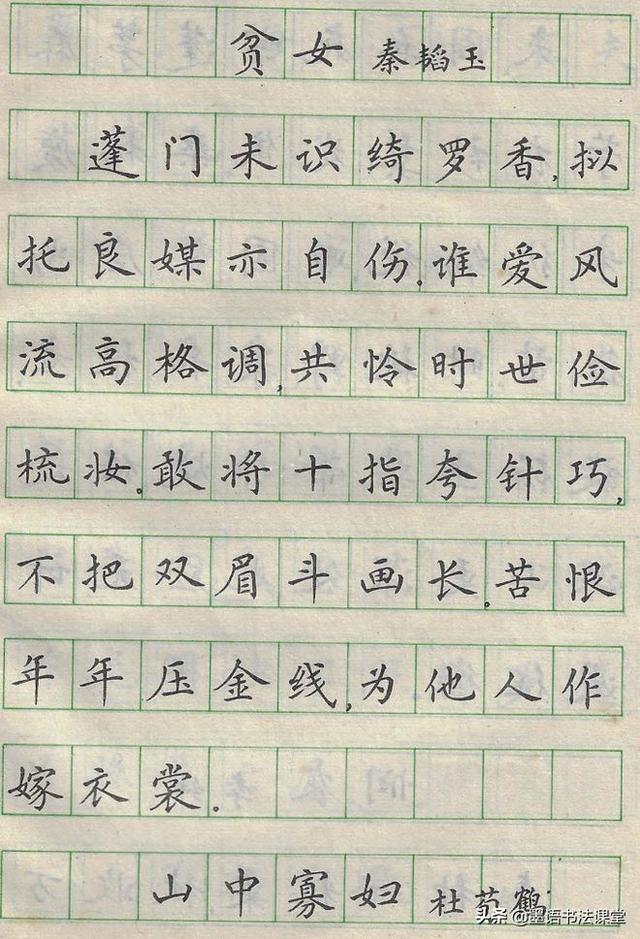 贫女 秦韬玉
蓬门未识绮罗香,拟
托良媒亦自伤.谁爱风
流高格调,共怜时世俭
梳妆。敢将十指夸针巧,
不把双眉斗画长。苦恨
年年压金线,为他人作
嫁衣裳.
山中寡妇 杜荀鹤
头条@墨语书法课堂